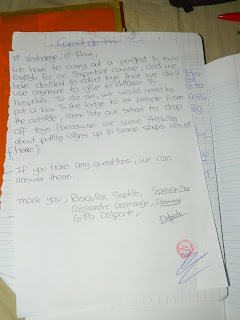 Mr Verhaege, Mr Plane,
We have to carry out a project in Euro
English for an important cause, and we
have decided to collect toys that we don't
use anymore to offer to children in
hospitals. To do so, we would need to
put a box in the lodge to let people from
the outside, come into our school to drop
off toys (because we were thinking
about putting signs up in some shops around
here)
If you have any questions, we can
answer them.
Thank you, Sophie,
Cassandre
Delporte,